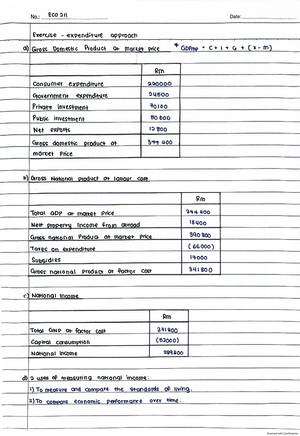 No.: ECO 211 Date:
Exercise - expenditure approach
a) Gross Domestic Product at market price * GDPmp = C + I + G + (X - M)
Rm
Consumer expenditure 220000
Government expenditure
Private investment
Public investment
Net exports
Gross domestic product at
market price
b) Gross National product at
Rm
Total GDP at market price
Nett property income from abroad 18400
Gross national Product at market price 390800
Taxes on expenditure (66000)
Subsidies 17000
Gross national product at factor cost 341800
c) National Income
Rm
Total GNP at factor cost 341800
Capital consumption
National income
d) 2 uses of measuring national income:
1) To measure and compare the standards of living.
2) To compare economic performance over time.
Scanned with CamScanner